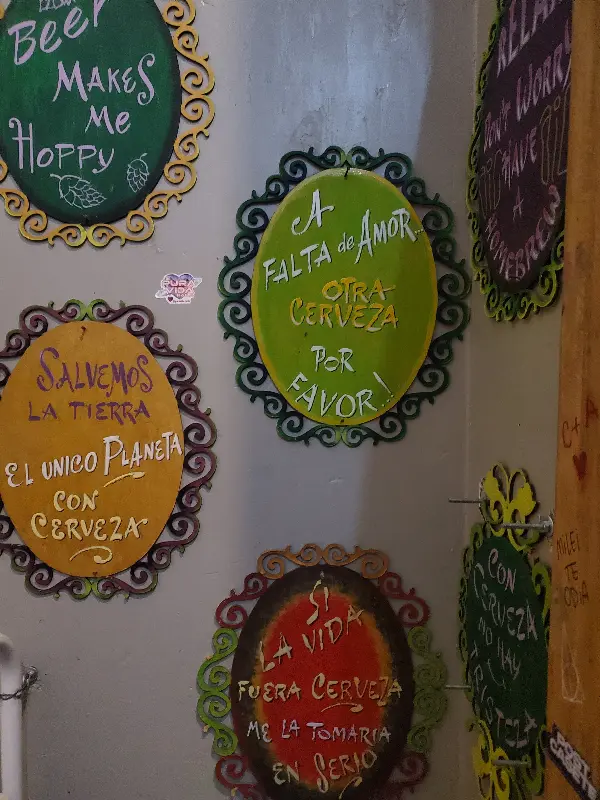 Beer
Makes
Me
Hoppy
RELAX
Don't WORRY
HAVE
A
HOMEBREW
A
FALTA de AMOR...
OTRA
CERVEZA
POR
FAVOR!
PURA
VIDA
SALVEMOS
LA TIERRA
EL UNICO PLANETA
CON
CERVEZA
C + A
SI
LA VIDA
FUERA CERVEZA
ME LA TOMARIA
EN SERIO
CON
CERVEZA
NO HAY
TRISTEZA
MILEI
TE
ODIA